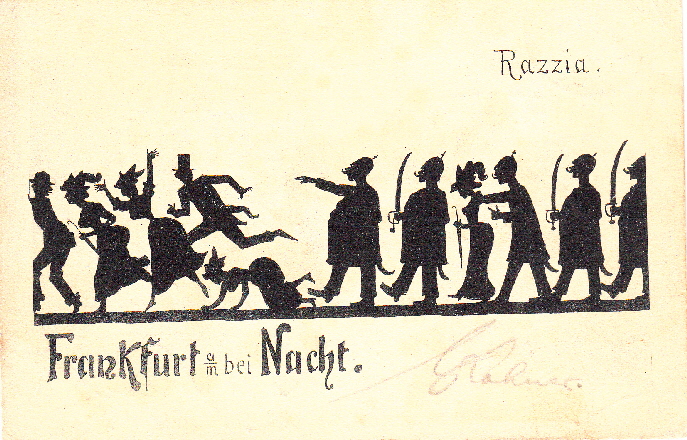 Razzia.
Frankfurt a/m bei Nacht.